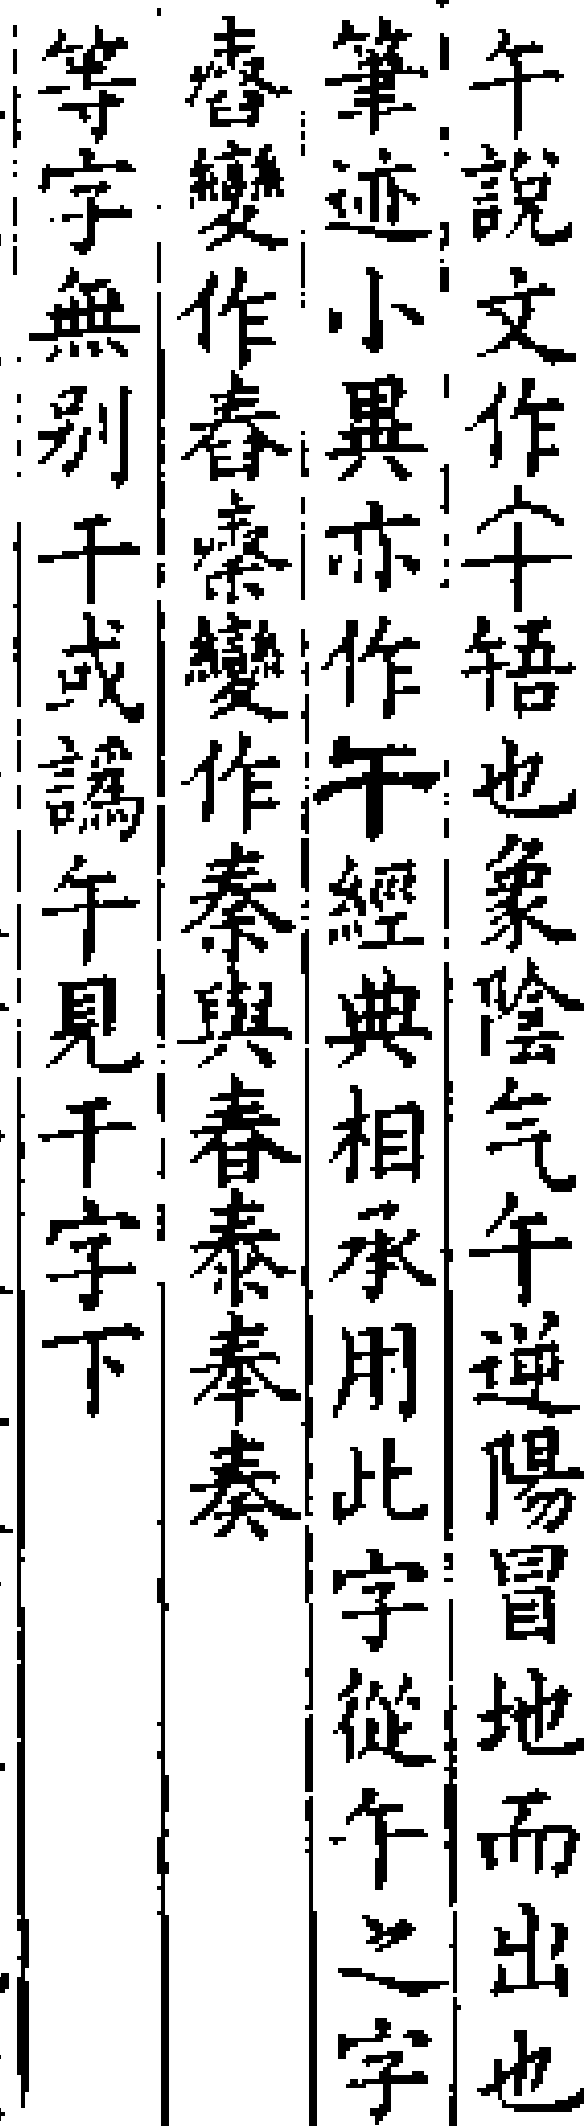 午說文作𠂒啎也象陰气午逆陽冒地而出也
筆迹小異亦作午經典相承用此字從午之字
舂變作舂𥘿變作秦與春泰奉奏
等字無別千或譌午見千字下